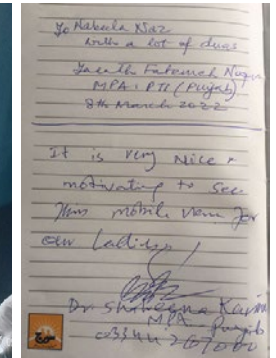 To Nabeela Niaz
with a lot of duas
Fatemeh
MPA: PTI (Punjab)
8th March 2022
It is very Nice &
motivating to see
this mobile van for
our Ladies,
Dr Shaheena Karim
MPA Punjab